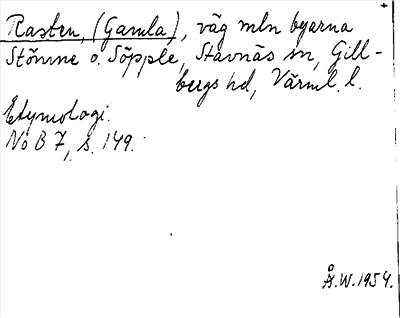 Rasten, (Gamla), väg mln byarna
Stömne o. Söpple, Stavnäs sn, Gill-
bergs hd, Värml. l.
Etymologi.
NoB 7, s. 149.
Å.W. 1954.